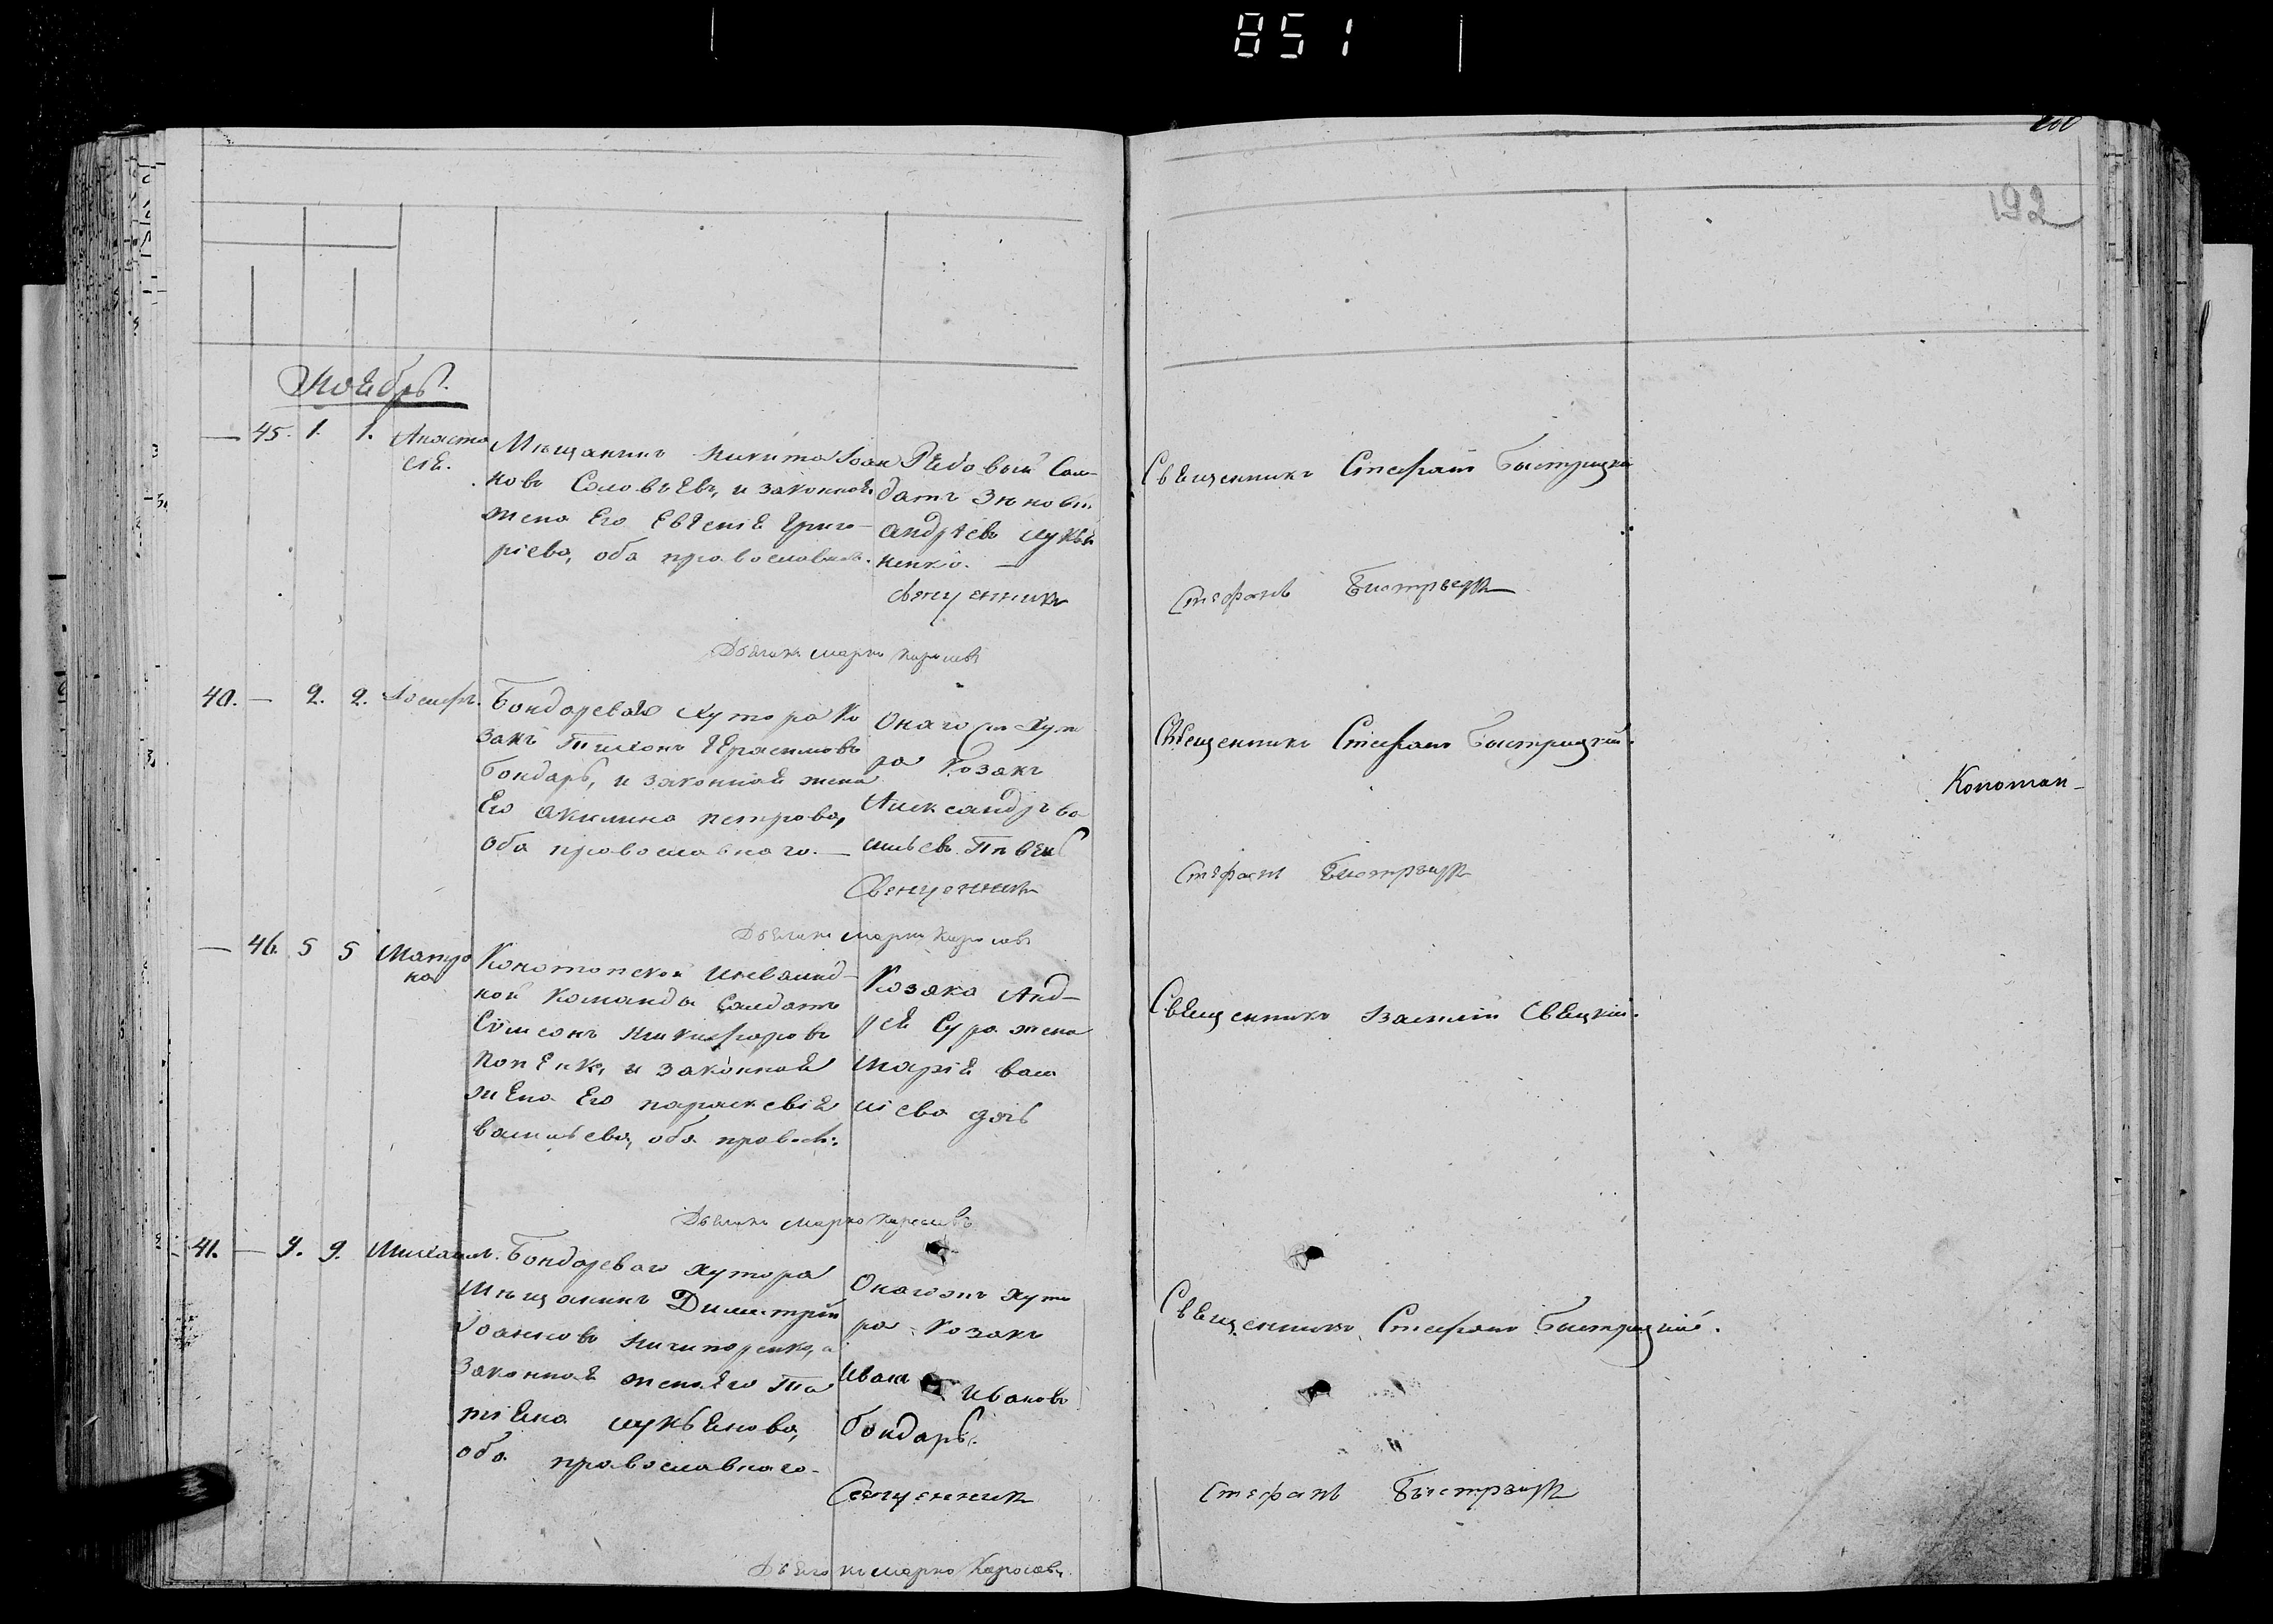 851
192
Ноябрь.
— 45. 1. 1. Анаста
сія.
Мѣщанинъ Никита Іоан
новъ Соловьевъ, и законная
жена Его Евгенія Григо-
ріева, оба православнаго.
Рядовый Сол-
датъ Зѣновій
Андреевъ Лукья
ненко. —
священникъ
Священникъ Стефанъ Быстрицкій
Стефанъ Быстрицкій
Дьячекъ Марко
40. — 2. 2. Іосифъ.
Бондарева Хутора Ко
закъ Тихонъ Герасимовъ
Бондарь, и законная жена
Его Акилина Петрова,
оба православнаго. —
Онаго Хуто
ра Козакъ
Александръ Ва
сильевъ
Священникъ
Священникъ Стефанъ Быстрицкій.
Конотоп-
Стефанъ Быстрицкій
Дьячекъ Марко
— 46. 5 5 Матро
на
Конотопской Инвалид-
ной Команды Солдатъ
Сѵмеонъ Никифоровъ
Попенко, и законная
жена Его Параскевія
Васильева, оба правосл:
Козака Анд-
рея Сура жена
Марія Васи
лиева дочь
Священникъ Василій Свецкій.
Дьячекъ Марко
41. — 9. 9. Михаилъ.
Бондарева Хутора
Мѣщанинъ Димитрій
Іоанновъ Ничипоренко, и
законная жена Его Та
тіана Лукьянова,
оба православнаго.
Онагожъ Хуто
ра Козакъ
Иванъ Ивановъ
Бондарь.
Священникъ
Священникъ Стефанъ Быстрицкій.
Стефанъ Быстрицкій
Дьячекъ Марко